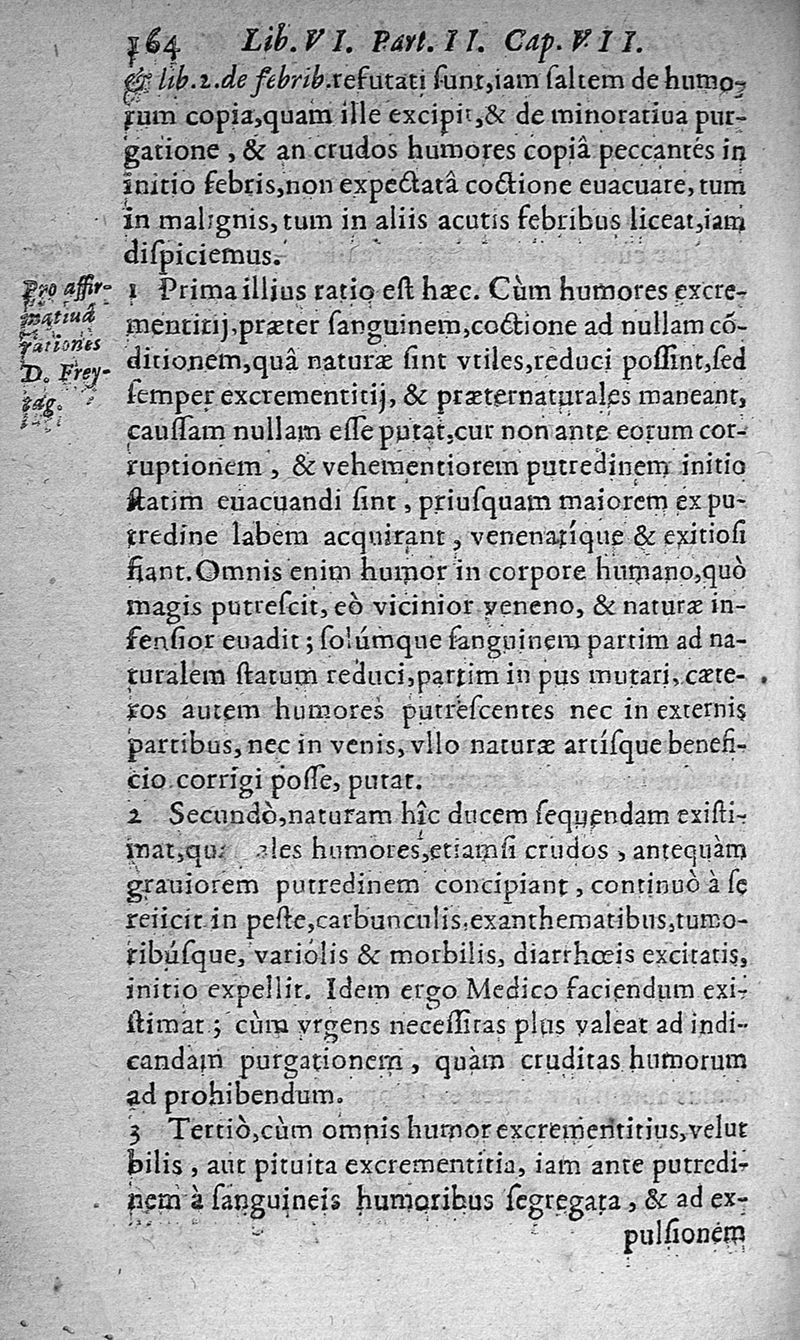 364 Lib. VI. Part. II. Cap. VII.
& lib.2.de febrib.refutati ſunt,iam ſaltem de humo-
rum copia,quam ille excipit,& de minoratiua pur-
gatione , & an crudos humores copiâ peccantés in
initio febris,non expectatâ coctione euacuare, tum
in malignis, tum in aliis acutis febribus liceat,iam
diſpiciemus.
Pro affir-
matiua
rationes
D. Frey-
tag.
1 Prima illius ratio eſt hæc. Cùm humores excre-
mentitij,præter ſanguinem,coctione ad nullam cõ-
ditionem,quâ naturæ ſint vtiles,reduci poſſint,ſed
ſemper excrementitij, & præternaturales maneant,
cauſſam nullam eſſe putat,cur non ante eorum cor-
ruptionem , & vehementiorem putredinem initio
ſtatim euacuandi ſint , priuſquam maiorem ex pu-
tredine labem acquirant , venenatíque & exitioſi
fiant.Omnis enim humor in corpore humano,quò
magis putreſcit, eò vicinior veneno, & naturæ in-
fenſior euadit ; ſolúmque ſanguinem partim ad na-
turalem ſtatum reduci,partim in pus mutari, cæte-
ros autem humores putreſcentes nec in externis
partibus, nec in venis, vllo naturæ artíſque benefi-
cio corrigi poſſe, putat.
2 Secundò,naturam hîc ducem ſequendam exiſti-
mat, humores,etiamſi crudos , antequàm
grauiorem putredinem concipiant , continuò à ſe
reiicit in peſte,carbunculis,exanthematibus,tumo-
ribúſque, variolis & morbilis, diarrhœis excitatis,
initio expellit. Idem ergo Medico faciendum exi-
ſtimat ; cùm vrgens neceſſitas plus valeat ad indi-
candam purgationem , quàm cruditas humorum
ad prohibendum.
3 Tertiò,cùm omnis humor excrementitius,velut
bilis , aut pituita excrementitia, iam ante putredi-
nem à ſanguineis humoribus ſegregata , & ad ex-
pulſionem